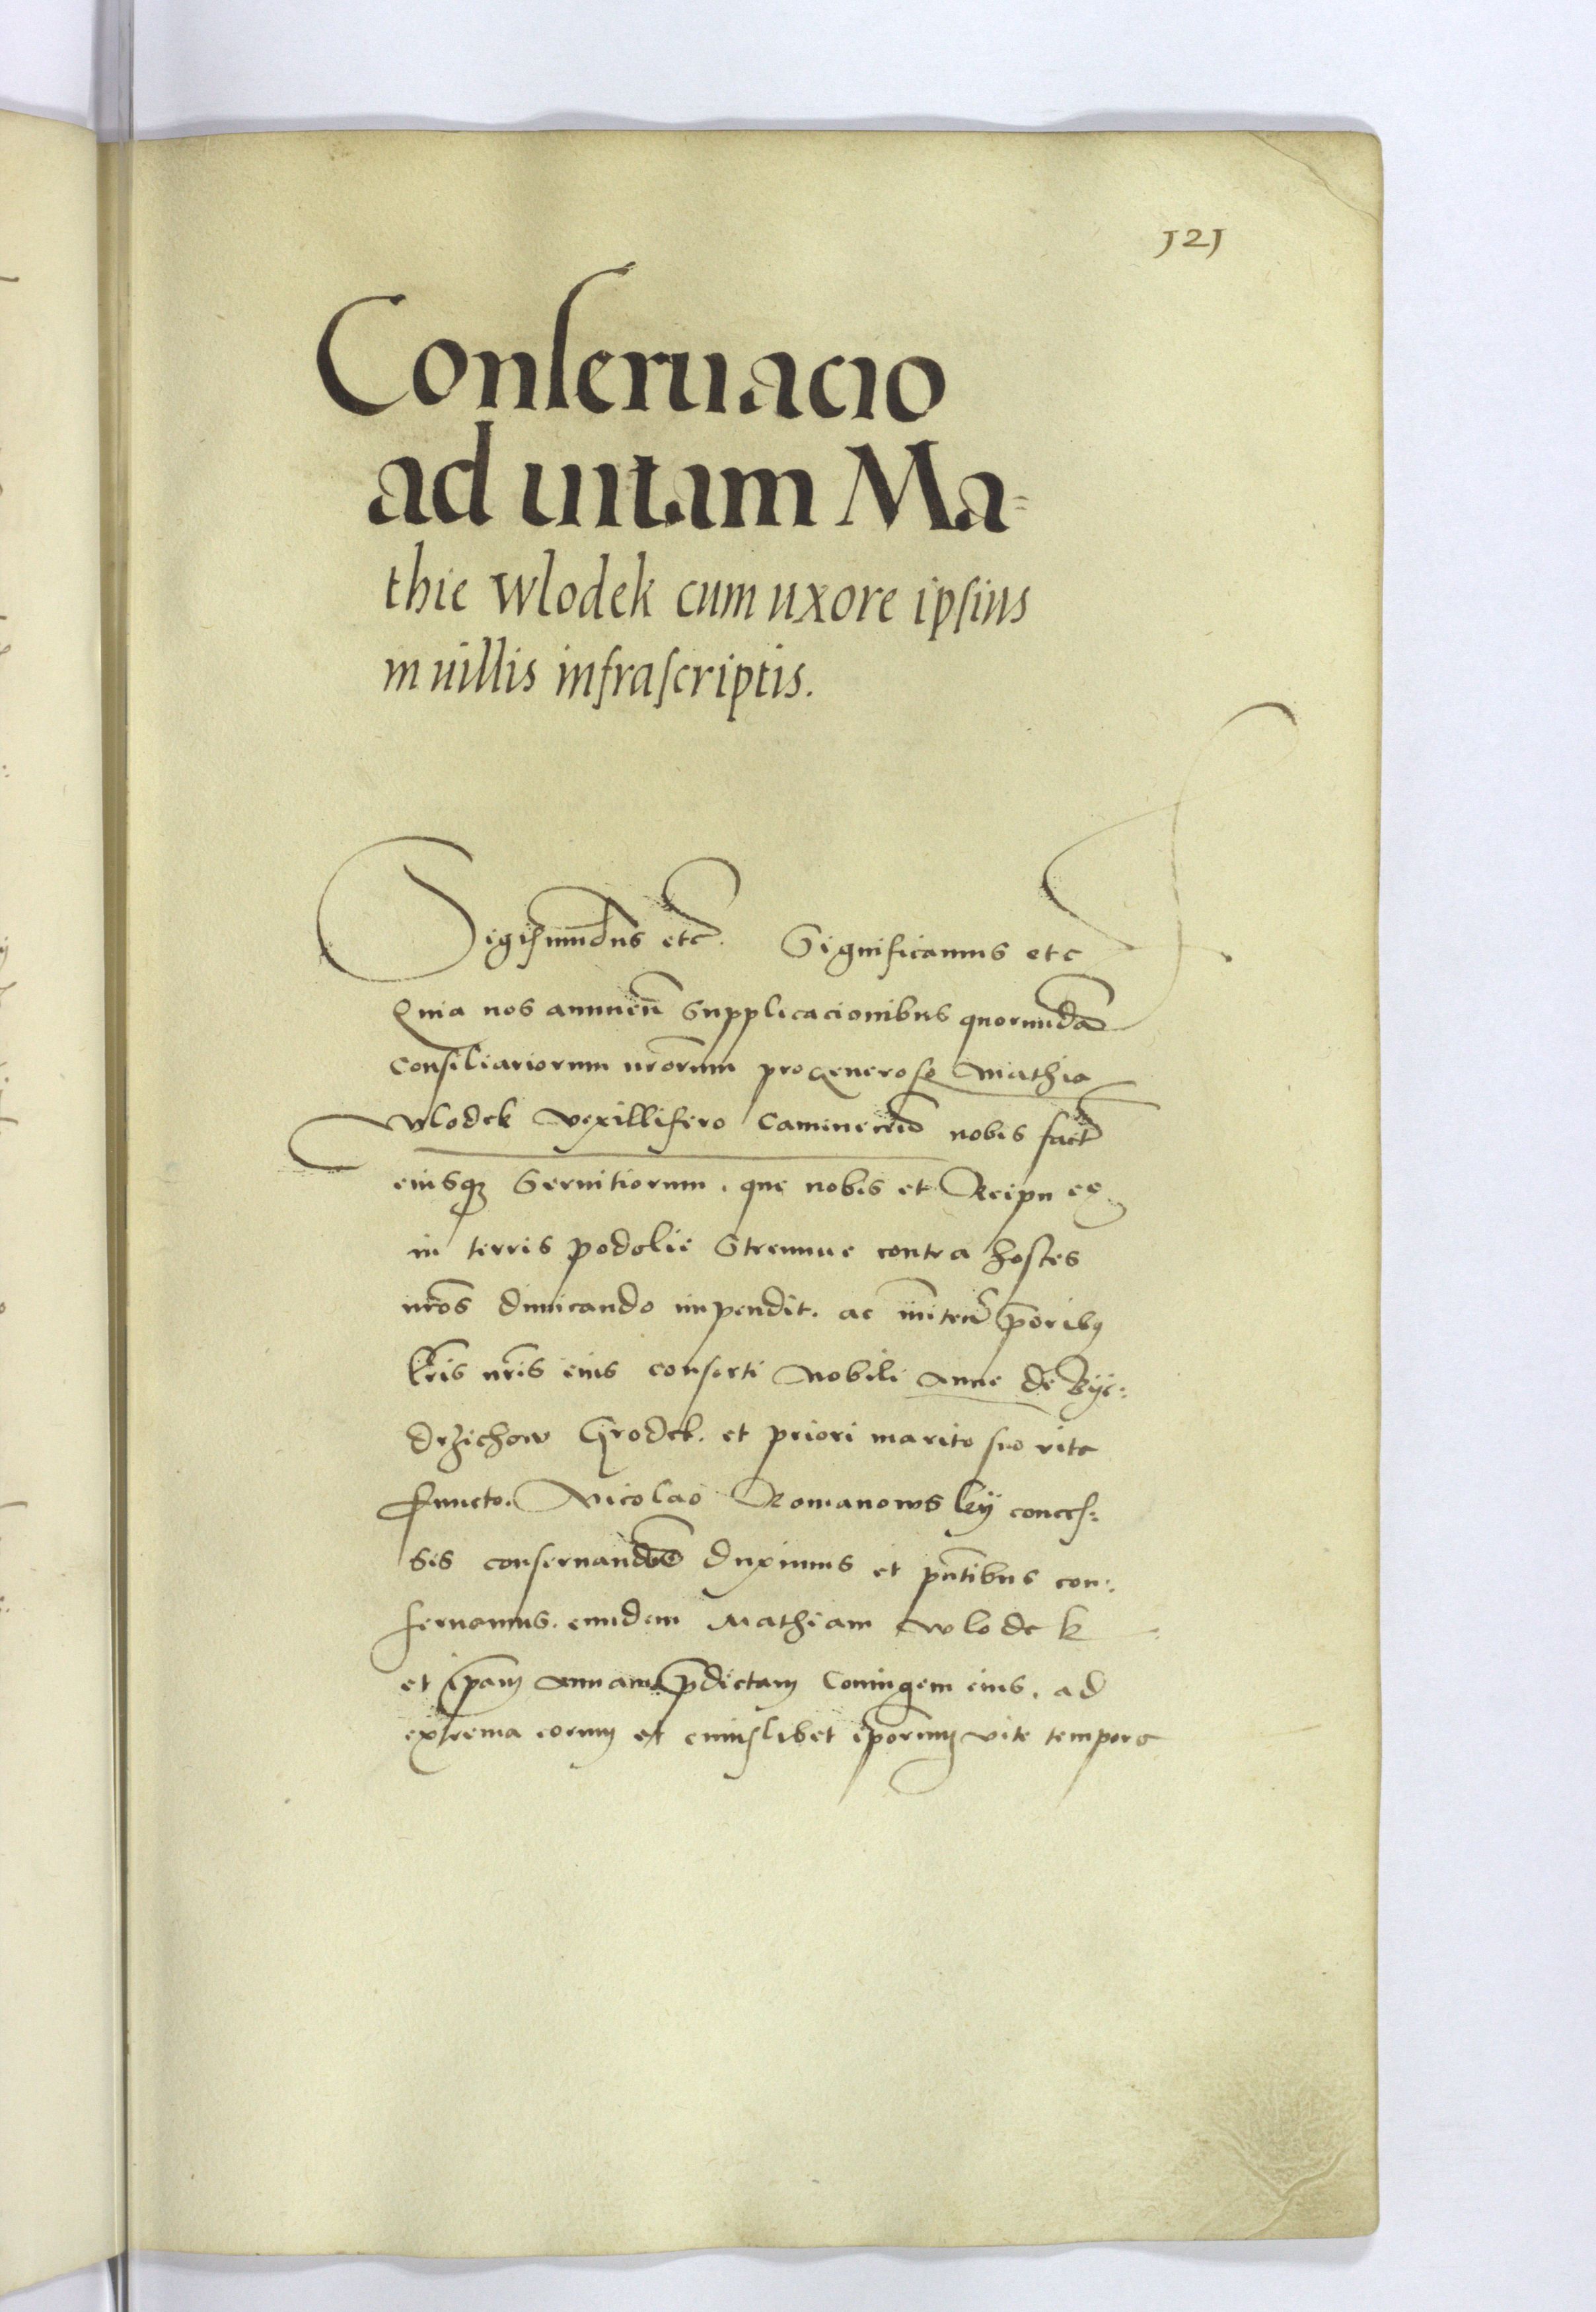 121
Conseruacio
ad uitam Ma=
thie Wlodek cum uxore ipsius
in uillis infrascriptis.
Sigismundus etc. Significamus etc
Quia nos annuen supplicacionibus quorundā
Consiliariorum nrorum pro generoso Mathia
Wlodek vexillifero Camenecen nobis fact
eiusq₃ seruitiorum. que nobis et Reipu
in terris podolie strennue contra hostes
nros dimicando impendit. ac prioribus
lris nris eius consorti Nobili Anne de Byc:
drzichow Grodek. et priori marito suo vita
functo. Nicolao Romanowsky conces:
sis conseruandos duximus et pntibus con:
seruamus. eundem Mathiam Wlodek
et ipam Annam predictam Coniugem eius. ad
extrema eorum et cuiuslibet iporum vite tempora